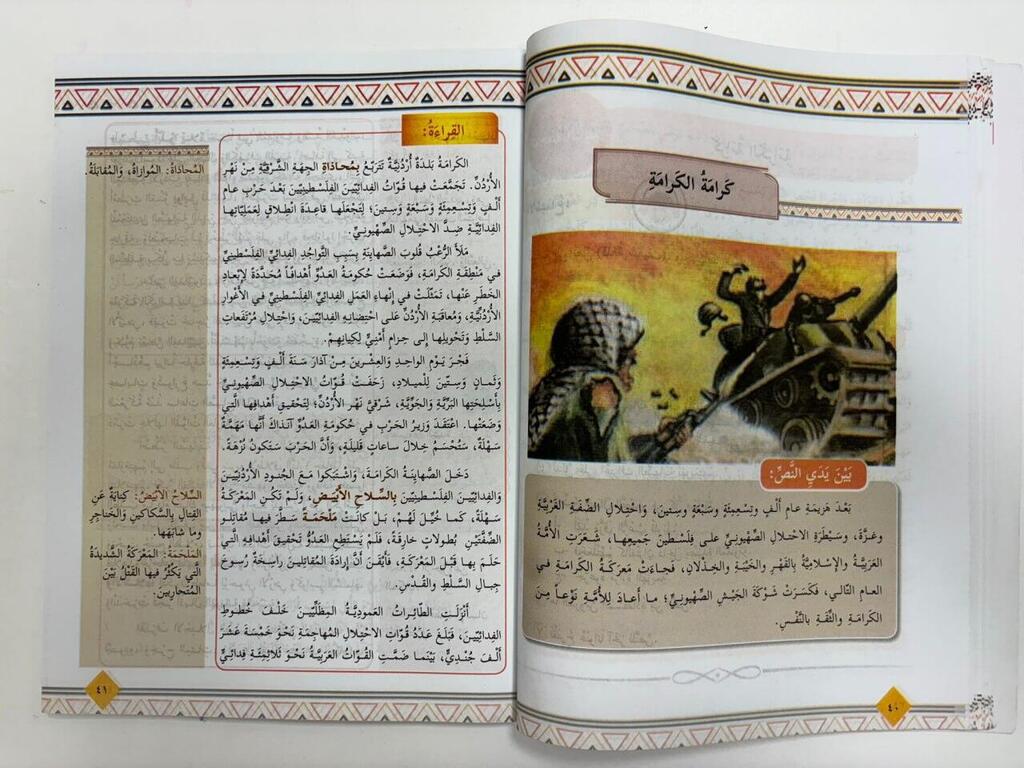 كَرامَةُ الكَرامَةِ
بَيْنَ يَدَيِ النَّصِّ:
بَعْدَ هَزيمَةِ عامِ أَلْفٍ وتِسْعِمِئَةٍ وسَبْعَةٍ وسِتينَ، وَاحْتِلالِ الضِّفَّةِ الغَرْبِيَّةِ
وغزَّةَ، وسَيْطَرَةِ الاحْتلالِ الصِّهْيونيِّ على فِلَسْطينَ جَميعِها، شَعَرَتِ الأُمَّةُ
العَرَبِيَّةُ والإِسْلامِيَّةُ بالقَهْرِ والخَيْبَةِ والخِذْلانِ، فجاءَتْ مَعرَكَةُ الكَرامَةِ في
العامِ التّالي، فكَسَرَتْ شَوْكَةَ الجَيْشِ الصِّهْيونيِّ؛ ما أَعادَ لِلأُمَّةِ نَوْعاً مِـنَ
الكَرامَةِ والثِّقَةِ بالنَّفْسِ.
٤٠
القِراءَةُ:
الكَرامَةُ بَلدَةٌ أُرْدُنيَّةٌ تَتَرَبَّعُ بِمُحاذاةِ الجِهَةِ الشَّرْقِيَّةِ مِـنْ نَهْرِ
الأُرْدُنِّ. تَجمَّعَتْ فيها قُوّاتُ الفِدائِيّينَ الفِلَسْطينِيّينَ بَعْدَ حَرْبِ عامِ
أَلْـفٍ وَتِسْعِمِئَةٍ وَسَبْعَةٍ وَسِتينَ؛ لِتَجْعَلَها قاعِدَةَ انْطِلاقٍ لِعَمَلِيّاتِها
الفِدائِيَّةِ ضِدَّ الاحْتِلالِ الصِّهْيونيِّ.
مَلَأَ الرُّعْبُ قُلوبَ الصَّهايِنَةِ بِسَبَبِ التَّواجُدِ الفِدائِيِّ الفِلَسْطينِيِّ
في مَنْطِقَةِ الكَرامَةِ، فَوَضَعَتْ حُكومَةُ العَدُوِّ أَهْدافاً مُحَدَّدَةً لإبْعادِ
الخَطَرِ عَنْها، تَمَثَّلَتْ في إِنْهاءِ العَمَلِ الفِدائِيِّ الفِلَسْطينِيِّ في الأَغْوارِ
الأُرْدُنِيَّةِ، وَمُعاقَبَةِ الأُرْدُنِّ عَلـى احْتِضانِهِ الفِدائِيّينَ، وَاحْتِلالِ مُرْتَفَعاتِ
السَّلْطِ وَتَحْويلِها إلى حِزامٍ أَمْنِيٍّ لِكِيانِهِمْ.
فَجْرَ يَوْمِ الواحِدِ وَالعِشْرينَ مِـنْ آذارَ سَنَةَ أَلْفٍ وَتِسْعِمِئَةٍ
وَثَمانٍ وَسِتّينَ لِلْميلادِ، زَحَفَتْ قُوّاتُ الاحْتِلالِ الصِّهْيونيِّ
بِأَسْلِحَتِها البَرِّيَّةِ وَالجَوِّيَّةِ، شَرْقِيَّ نَهْرِ الأُرْدُنِّ؛ لِتَحْقيقِ أَهْدافِها الَّتي
وَضَعَتْها. اعْتَقَدَ وَزيرُ الحَرْبِ في حُكومَةِ العَدُوِّ آنَذاكَ أَنَّها مَهَمَّةٌ
سَهْلَةٌ، سَتُحْسَمُ خِلالَ ساعاتٍ قَليلَةٍ، وَأَنَّ الحَرْبَ سَتَكونُ نُزْهَةً.
دَخـلَ الصَّهايِنَةُ الكَرامَةَ، وَاشْتَبَكوا مَـعَ الجُنودِ الأُرْدُنِيّينَ
وَالفِدائِيّينَ الفِلَسْطينِيّينَ بِالسِّلاحِ الأَبْيَـضِ، وَلَـمْ تَكُنِ المَعْرَكَةُ
سَهْلَةً، كَمـا خُيِّـلَ لَهُـمْ، بَـلْ كانَتْ مَلْحَمَـةً سَطَّرَ فيهـا مُقاتِلـو
الضِّفَّتَيْنِ بُطولاتٍ خارِقَةً، فَلَمْ يَسْتَطِعِ العَدُوُّ تَحْقيقَ أَهْدافِهِ الَّتي
حَلَمَ بِها قَبْلَ المَعْرَكَةِ، فَأَيْقَنَ أَنَّ إِرادَةَ المُقاتِلينَ راسِخَةٌ رُسوخَ
جِبالِ السَّلْطِ وَالقُدْسِ.
أُنْزِلَـتِ الطّائِـراتُ العَموديَّـةُ المِظَلِّيّينَ خَلْـفَ خُطوطِ
الفِدائِيّينَ، فَبَلَغَ عَدَدُ قُوّاتِ الاحْتِلالِ المُهاجِمَةِ نَحْوَ خَمْسَةَ عَشَرَ
أَلْـفَ جُنْدِيٍّ، بَيْنَمـا ضَمَّتِ القُوّاتُ العَرَبِيَّةُ نَحْوَ ثَلاثِمِئَةِ فِدائِيٍّ
المُحاذاةُ: المُوازاةُ، وَالمُقابَلَةُ.
السِّلاحُ الأَبْيَضُ: كِنايَةٌ عَنِ
القِتالِ بِالسَّكاكينِ وَالخَناجِرِ
وما شابَهَها.
المَلْحَمَةُ: المَعْرَكَةُ الشَّديدَةُ
الَّتي يَكْثُرُ فيها القَتْلُ بَيْنَ
المُتَحارِبينَ.
٤١